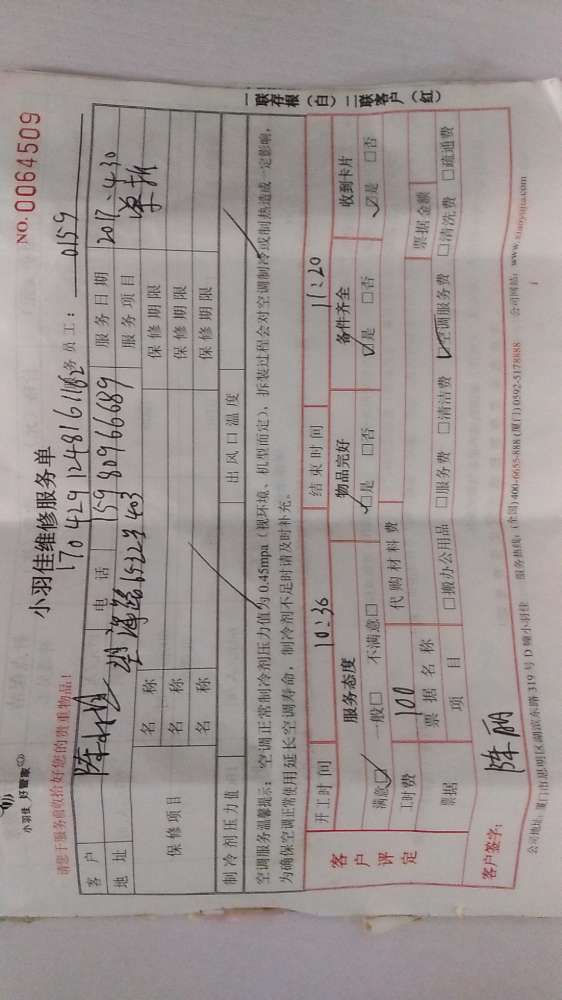 小羽佳 好管家
NO. 0064509
小羽佳维修服务单
请您于服务前收拾好您的贵重物品!
服务员工: 0159
客户 电话 15980966689 服务日期 2017.4.30
地址 服务项目
保修项目 名称 保修期限
名称 保修期限
名称 保修期限
制冷剂压力值 出风口温度
空调服务温馨提示: 空调正常制冷剂压力值为0.45mpa (视环境、机型而定), 拆装过程会对空调制冷或制热造成一定影响,
为确保空调正常使用延长空调寿命, 制冷剂不足时请及时补充。
开工时间 10:36 结束时间 11:20
客户评定 服务态度 物品完好 备件齐全 收到卡片
满意☑ 一般□ 不满意□ ☑是 □否 ☑是 □否 ☑是 □否
工时费 100 代购材料费
票据 票据名称 票据金额
项目 □搬办公用品 □服务费 □清洁费 ☑空调服务费 □清洗费 □疏通费
客户签字: 陈丽
公司地址: 厦门市思明区湖滨东路319号D幢小羽佳 服务热线: (全国) 400-6655-888 (厦门) 0592-5178888 公司网站: www.xiaoyujia.com
一联存根 (白) 二联客户 (红)